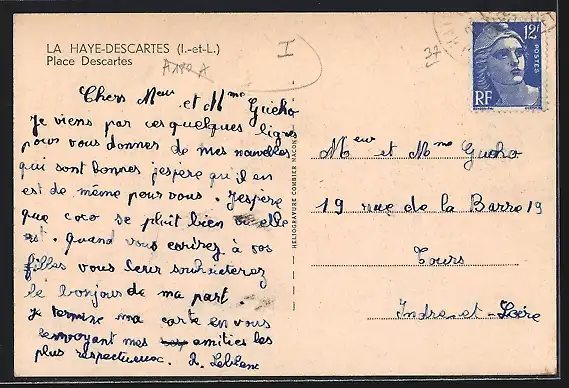 LA HAYE-DESCARTES (I.-et-L.)
Place Descartes
I
37
12F
POSTES
RF
Chers Meur et Mme Gucho
Je viens par ces quelques lignes
pour vous donner de mes nouvelles
qui sont bonnes j'espere qu'il en
est de même pour vous. J'espère
que coco se pluit bien ou elle
est. Quand vous ecrirez à vos
filles vous leur souhaiterez
le bonjour de ma part.
Je termine ma carte en vous
envoyant mes amities les
plus respectueux. R. Leblanc
HÉLIOGRAVURE COMBIER MACON
Meur et Mme Gucho
19 rue de la Barre 19
Tours
Indre-et-Loire